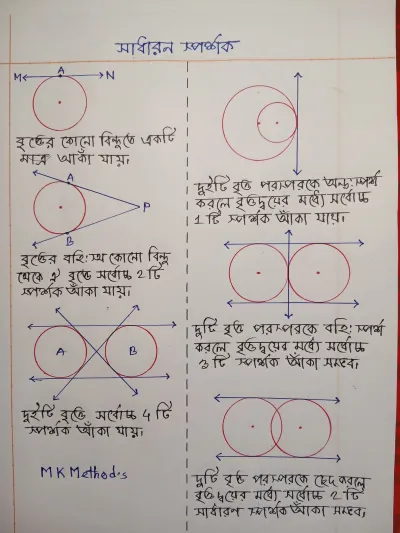 সাধারন স্পর্শক
M A N
বৃত্তের কোনো বিন্দুতে একটি
মাত্র আঁকা যায়।
A
P
B
বৃত্তের বহিঃস্থ কোনো বিন্দু
থেকে ঐ বৃত্তে সর্বোচ্চ 2 টি
স্পর্শক আঁকা যায়।
A B
দুইটি বৃত্তে সর্বোচ্চ 4 টি
স্পর্শক আঁকা যায়।
MK Methods
দুইটি বৃত্ত পরস্পরকে অন্তঃস্পর্শ
করলে বৃত্তদ্বয়ের মধ্যে সর্বোচ্চ
1 টি স্পর্শক আঁকা যায়।
দুটি বৃত্ত পরস্পরকে বহিঃস্পর্শ
করলে বৃত্তদ্বয়ের মধ্যে সর্বোচ্চ
3 টি স্পর্শক আঁকা সম্ভব।
দুটি বৃত্ত পরস্পরকে ছেদ করলে
বৃত্তদ্বয়ের মধ্যে সর্বোচ্চ 2 টি
সাধারণ স্পর্শক আঁকা সম্ভব।